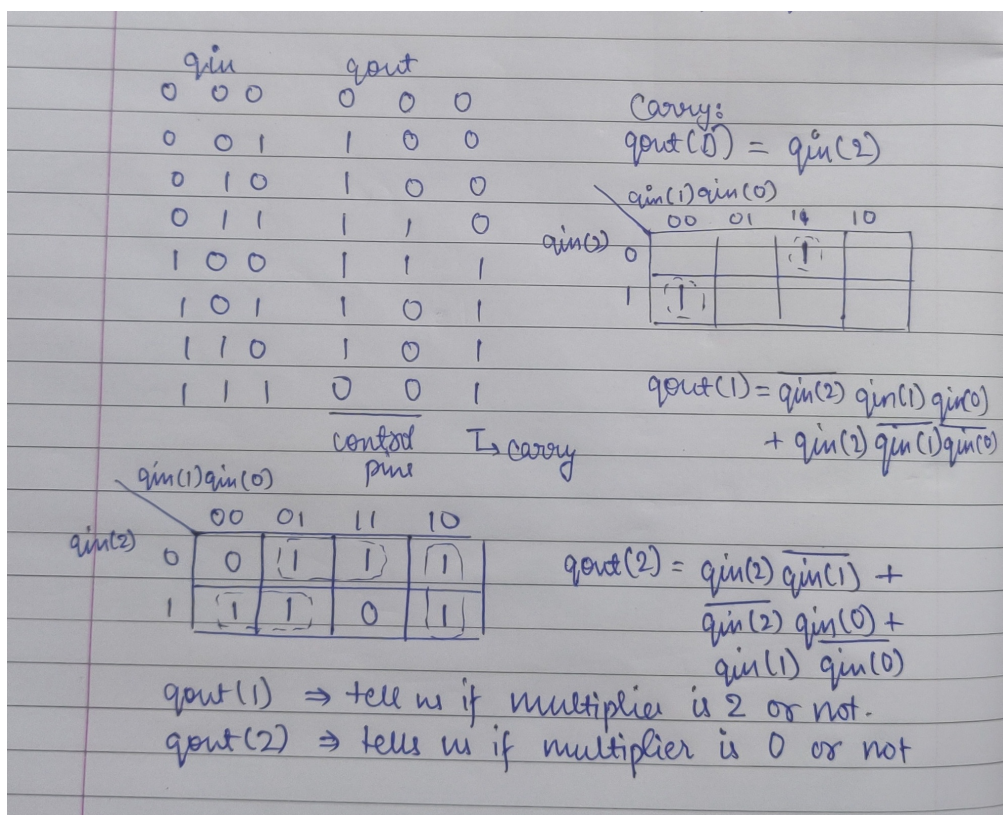 qin qout
0 0 0 0 0 0
0 0 1 1 0 0
0 1 0 1 0 0
0 1 1 1 1 0
1 0 0 1 1 1
1 0 1 1 0 1
1 1 0 1 0 1
1 1 1 0 0 1
control pins ↳ carry
Carry:
qout(0) = qin(2)
qin(1)qin(0)
00 01 11 10
qin(2) 0 1
1 1
qout(1) = \overline{qin(2)} qin(1) qin(0)
+ qin(2) \overline{qin(1)} \overline{qin(0)}
qin(1)qin(0)
00 01 11 10
qin(2) 0 0 1 1 1
1 1 1 0 1
qout(2) = qin(2) \overline{qin(1)} +
\overline{qin(2)} qin(0) +
qin(1) \overline{qin(0)}
qout(1) ⇒ tell us if multiplier is 2 or not.
qout(2) ⇒ tells us if multiplier is 0 or not